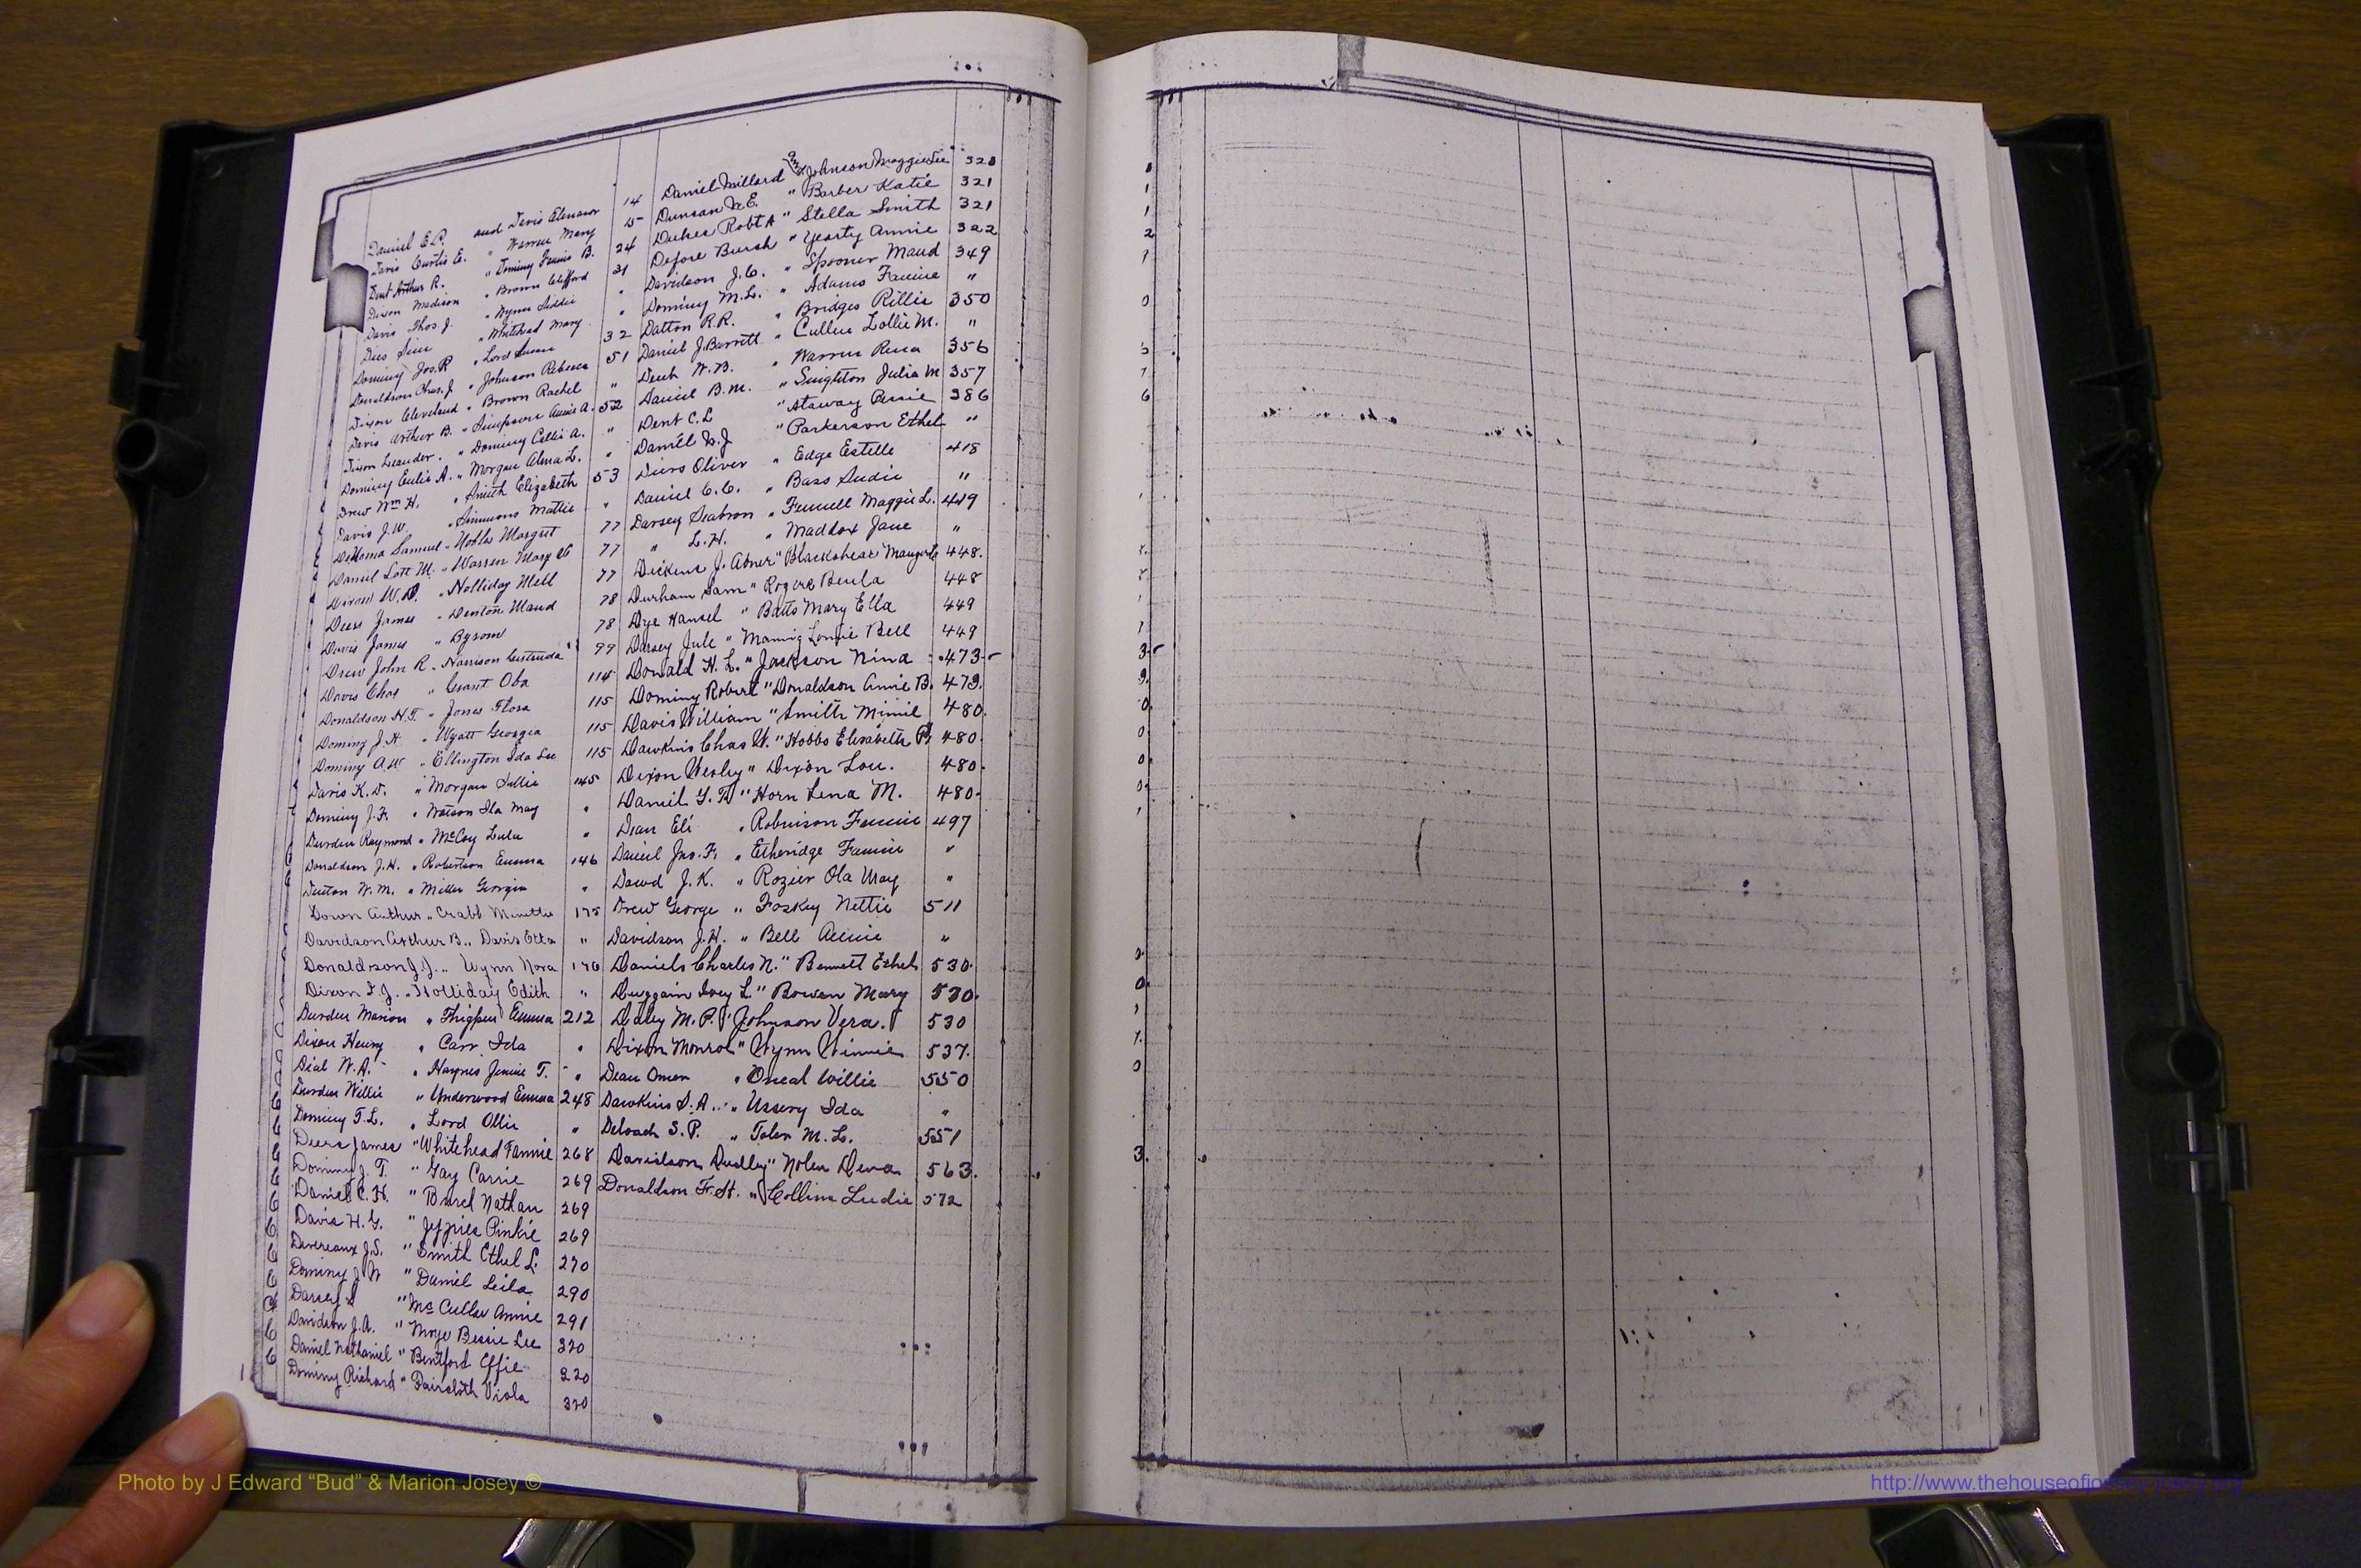 Daniel E.P. and Davis Eleanor 14
Davis Curtis E. " Warren Mary 15
Dent Arthur R. " Dominy Fannie B. 24
Dixon Madison " Brown Clifford 31
Davis Thos J. " Wynn Siddie "
Dees Sim " Whitehead Mary "
Dominy Jos. R " Lord Susan 32
Donaldson Chas. J " Johnson Rebecca 51
Dixon Cleveland " Brown Rachel "
Davis Arthur B. " Simpson Annie A. 52
Dixon Leander. " Dominy Callie A. "
Dominy Eulis A. " Morgan Alma L. "
Drew Wm H. " Smith Elizabeth 53
Davis J.W. " Simmons Mattie "
Samuel " Margret 77
Daniel Lott M. " Warren Mary 77
Dixon W.D. " Holliday Mell 77
Deese James " Denton Maud 78
Davis James " Byrom 78
Drew John R. " Harrison Gertrude 99
Davis Chas " Grant Oba 114
Donaldson H.T. " Jones Flora 115
Dominy J.H. " Wyatt Georgia 115
Dominy A.W. " Ellington Ida Lee 115
Davis K.D. " Morgan Sallie 145
Dominy J.F. " Watson Ila May "
Durden Raymond " McCoy Lula "
Donaldson J.H. " Robertson Emma 146
Dutton W.M. " Miller Georgia "
Down Arthur " Crabb 175
Davidson Arthur B. " Davis Etta "
Donaldson J.J. " Wynn Nora 176
Dixon F.J. " Holliday Edith "
Durden Marion " Thigpen Emma 212
Dixon Henry " Carr Ida "
Dial W.A. " Haynes Jennie T. "
Durden Willie " Underwood Emma 248
Dominy T.L. " Lord Ollie "
Deese James " Whitehead Fannie 268
Dominy J.T. " Gay Carrie 269
Daniel C.H. " Burch Nathan 269
Davis H.G. " Jeffries Pinkie 269
Devereaux J.S. " Smith Ethel L. 270
Dominy J W " Daniel Leila 290
Darsey " McCullar Annie 291
Davidson J.A. " Moye Bessie Lee 320
Daniel Nathaniel " Bentford Effie 320
Dominy Richard " Faircloth Viola 320
Daniel Millard and Johnson Maggie Lee 320
Duncan W.E. " Barber Katie 321
Dukes Robt A " Stella Smith 321
Defore Burch " Yearty Annie 322
Davidson J.C. " Spooner Maud 349
Dominy M.L. " Adams Fannie "
Datton R.R. " Bridges Rillis 350
Daniel J. Barrett " Cullen Lollie M. "
Dent W.B. " Warren Rena 356
Daniel B.M. " Singleton Julia M 357
Dent C.L " Ataway Bessie 386
Daniel W.J " Parkerson Ethel "
Diers Oliver " Edge Estelle 418
Daniel C.C. " Bass Sudie "
Darsey Seabron " Fennell Maggie L. 419
" L.H. " Maddox Jane "
Dickens J. Abner " Blackshear 448.
Durham Sam " Rogers Beula 448
Dye Hansel " Batts Mary Ella 449
Darsey Jule " Lonnie Bell 449
Donald H.L. " Jackson Nina 473
Dominy Robert " Donaldson Annie B. 479.
Davis William " Smith Minnie 480.
Dawkins Chas W. " Hobbs Elisabeth P. 480.
Dixon Wesley " Dixon Lou. 480.
Daniel G.T. " Horn Lena M. 480.
Dean Eli " Robinson Fannie 497
Daniel Jno. F. " Etheridge Fannie "
David J.K. " Rozier Ola May "
Drew George " Foskey Nettie 511
Davidson J.H. " Bell Annie "
Daniels Charles N. " Bennett Ethel 530.
Duggain Ivey L. " Bowen Mary 530.
Daley M.P. " Johnson Vera. 530
Dixon Monroe " Wynn Winnie 537.
Dean Omer " Oneal Willie 550
Dawkins S.A. " Ussery Ida "
Deloach S.P. " Toler M.L. 551
Davidson Dudley " Nolen Deva 563.
Donaldson F.H. " Collins Ludie 572
Photo by J Edward “Bud” & Marion Josey ©
http://www.thehouseofjossey-josey.org